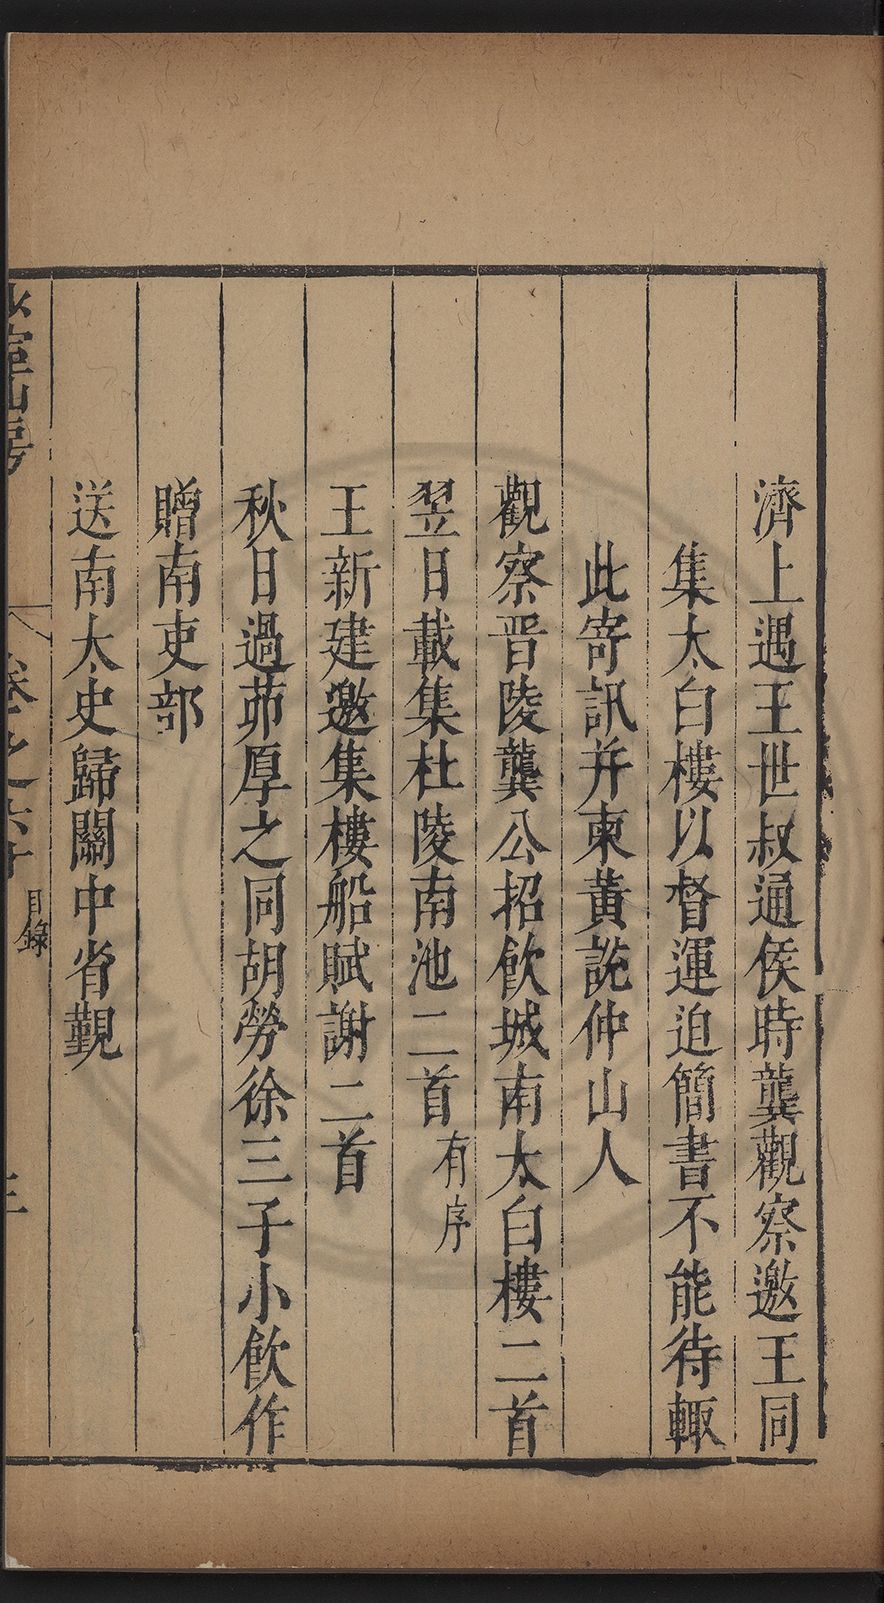 濟上遇王世叔通侯時龔觀察邀王同
集太白樓以督運迫簡書不能待輒
此寄訊并柬黃說仲山人
觀察晋陵龔公招飲城南太白樓二首
翌日載集杜陵南池二首有序
王新建邀集樓船賦謝二首
秋日過茆厚之同胡勞徐三子小飲作
贈南吏部
送南太史歸關中省覲
山房
卷之六十
目錄
三